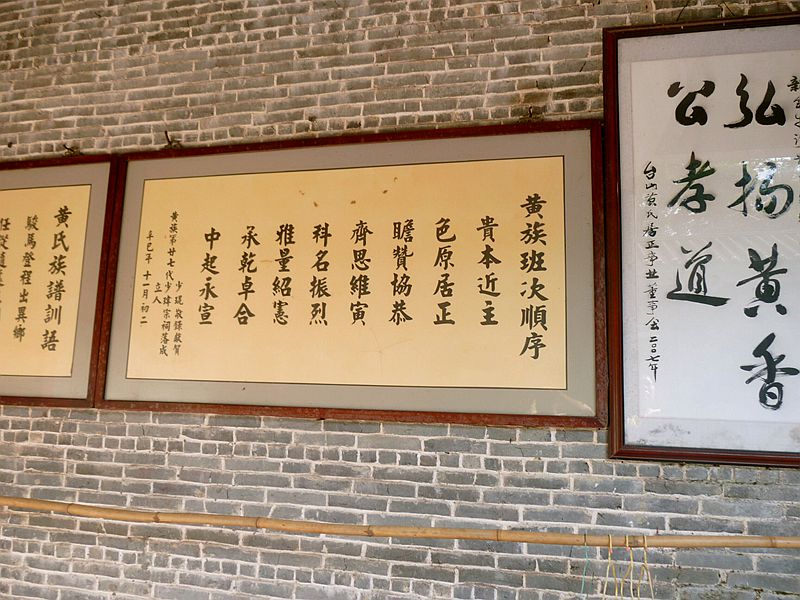 弘揚黃香
公孝道
台山黃氏居正事业董事会二00七年
黃族班次順序
貴本近主
色原居正
瞻贊協恭
齊思維寅
科名振烈
雅量紹憲
承乾卓合
中起永宣
黃族第廿七代少琨敬錄敬賀
少瑋宗祠落成
立人
辛巳年十一月初二
黃氏族譜訓語
駿馬登程出異鄉
任從